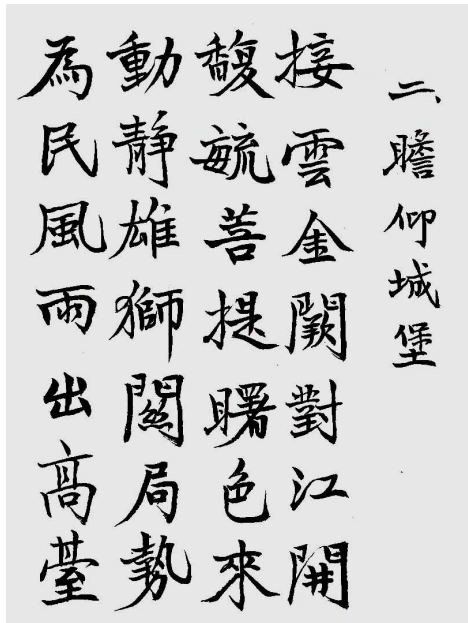 二、瞻仰城堡
接雲金闕對江開
馥毓菩提曙色來
動靜雄獅關局勢
為民風雨出高臺